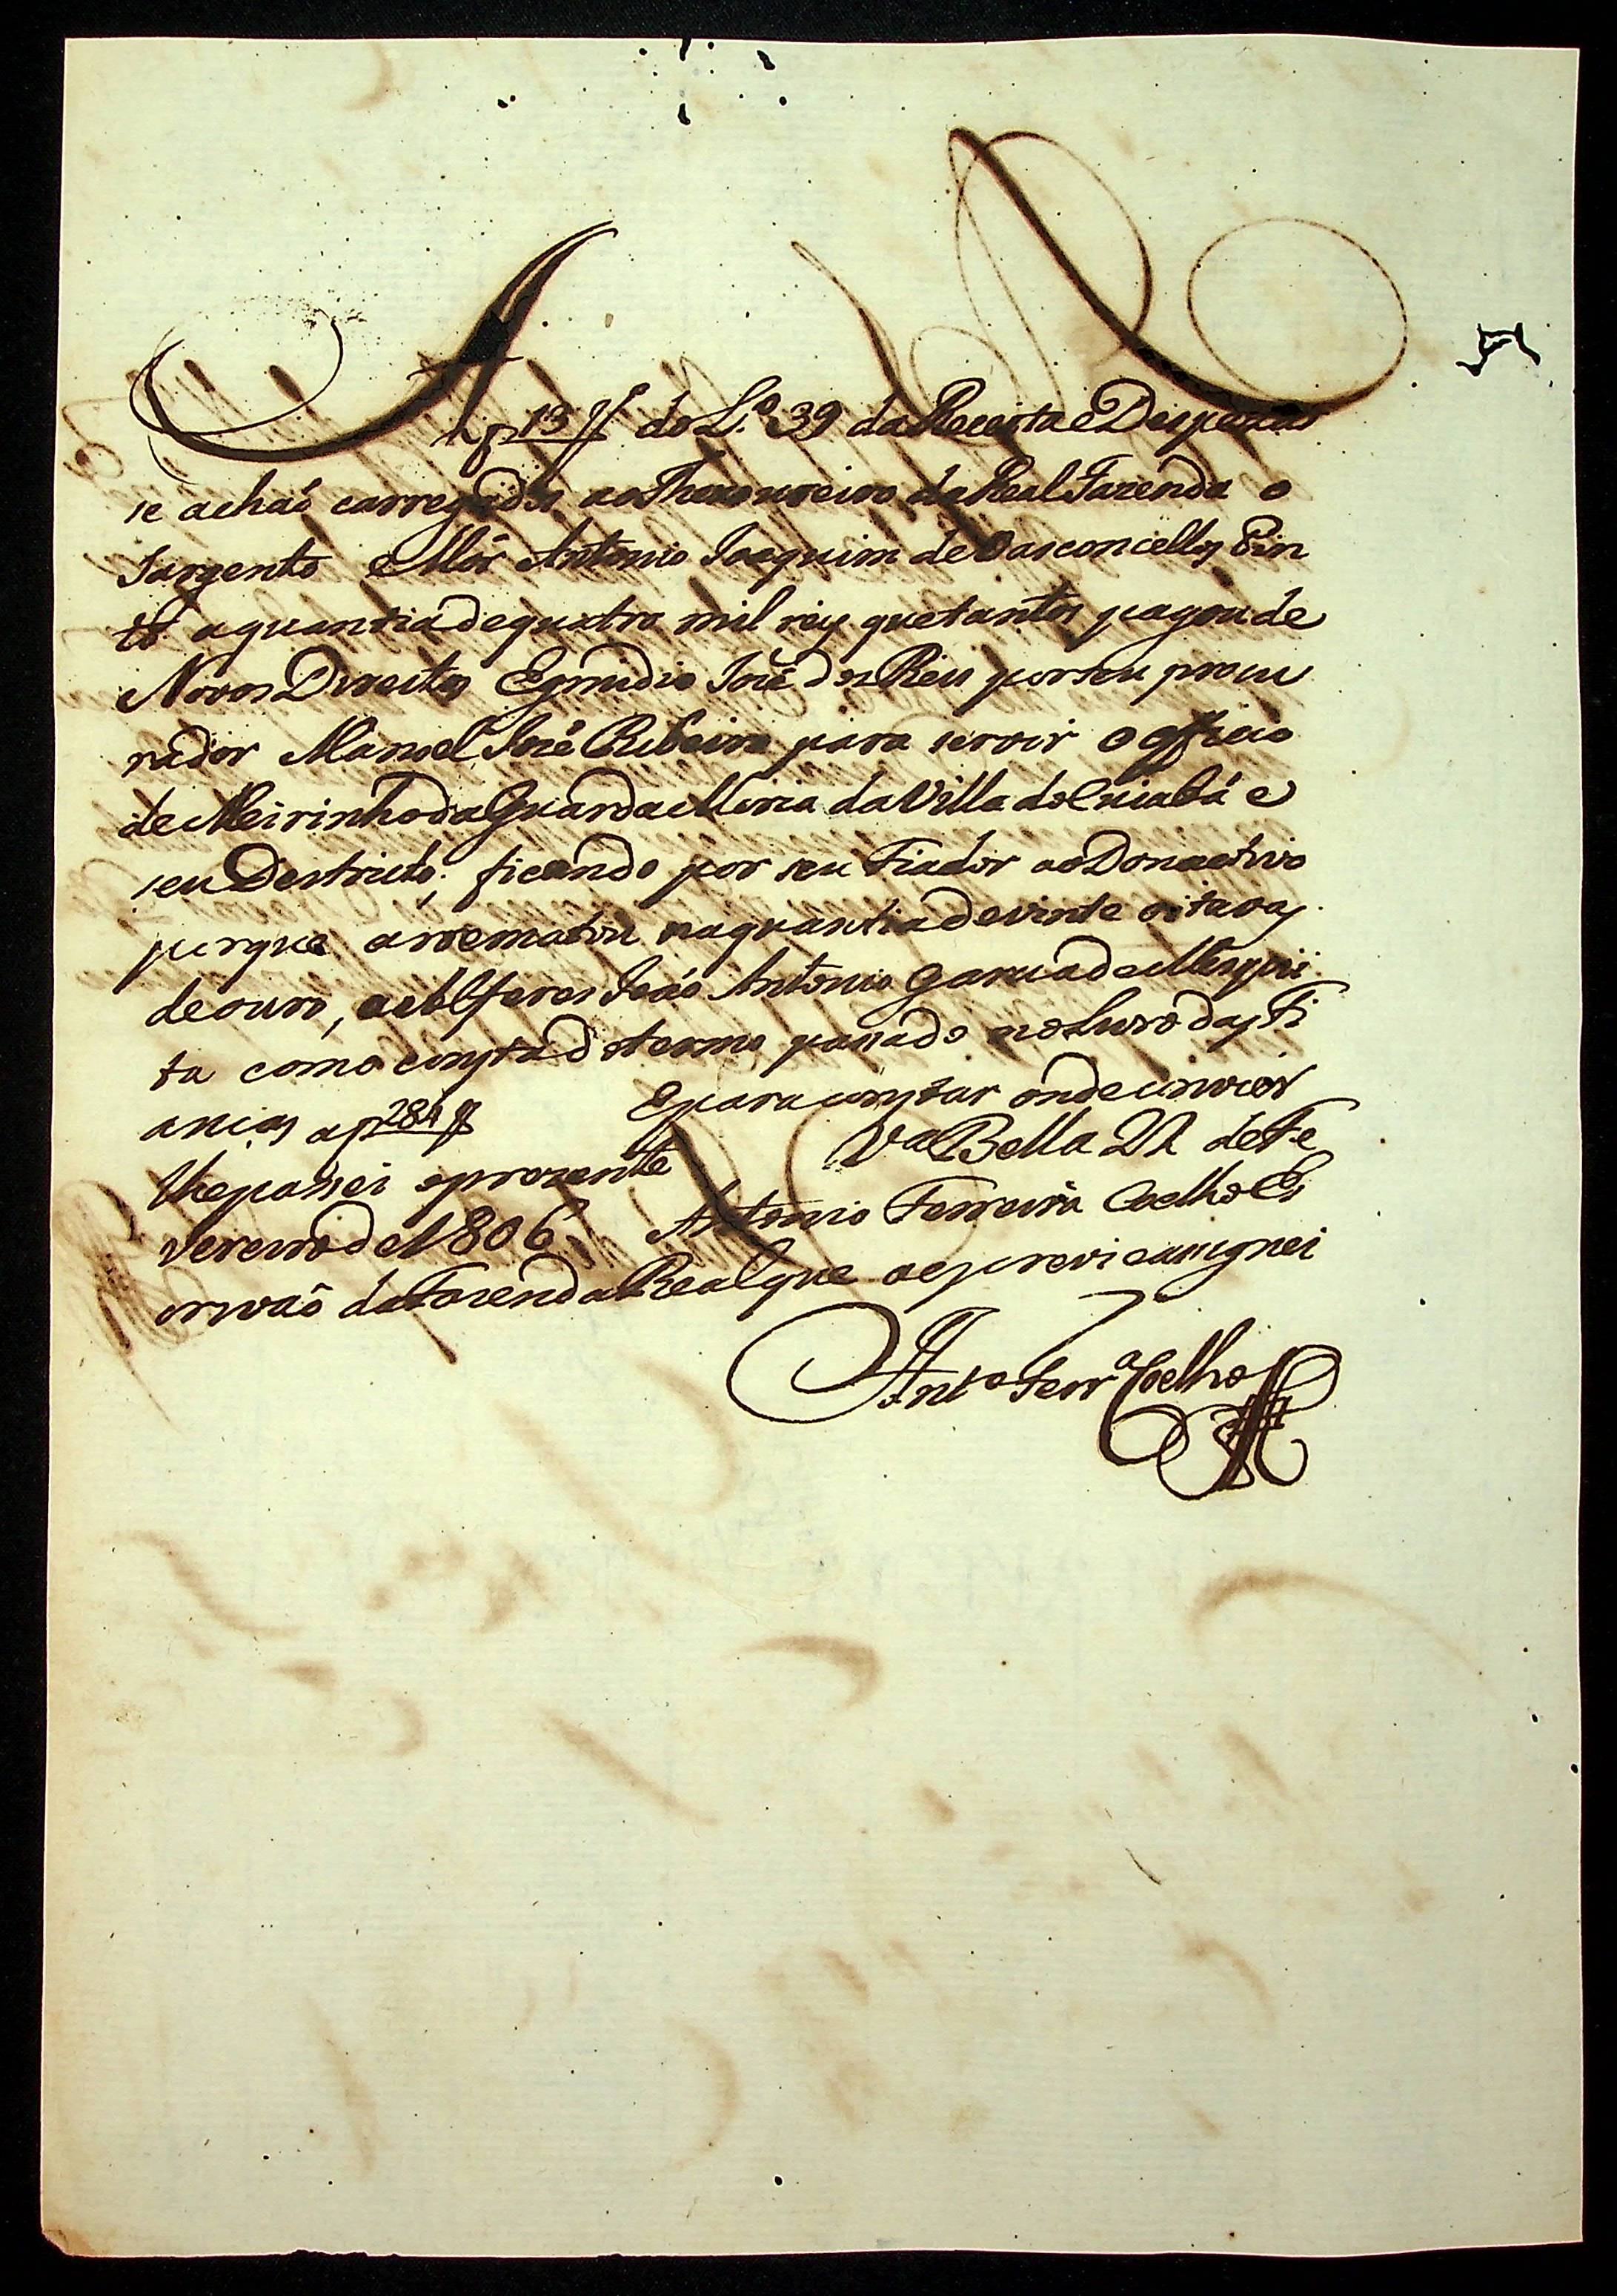 Af 13 V do L.º 39 da Receita e Despezas
se achaõ carregados ao Thezoureiro da Real Fazenda o
Sargento Mór Antonio Joaquim de Vasconcellos Pin
to a quantia de quatro mil reis que tantos pagou de
Novos Direitos Egiudio José dos Reis por seu procu
rador Manoel José Ribeiro para servir o officio
de Meirinho da Guarda Moria da Villa do Cuiabá e
seu Destricto; ficando por seu Fiador ao Donactivo
porque arrematou na quantia de vinte oitavas
de ouro, o Alferes João Antonio Garcia de Mesqui
ta como consta do termo passado no Livro das Fi
ancias af 284 V E para constar onde convier
lhe passei o prezente V.a Bella 22 de Fe
vereiro de 1806 Antonio Ferreira Coelho Es
crivaõ da Fazenda Real que o escrevi e assignei
Ant.º Ferr.ª Coelho